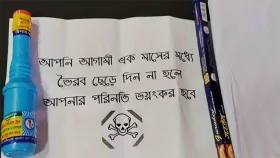 আপনি আগামী এক মাসের মধ্যে
ভৈরব ছেড়ে দিন না হলে
আপনার পরিনতি ভয়ংকর হবে